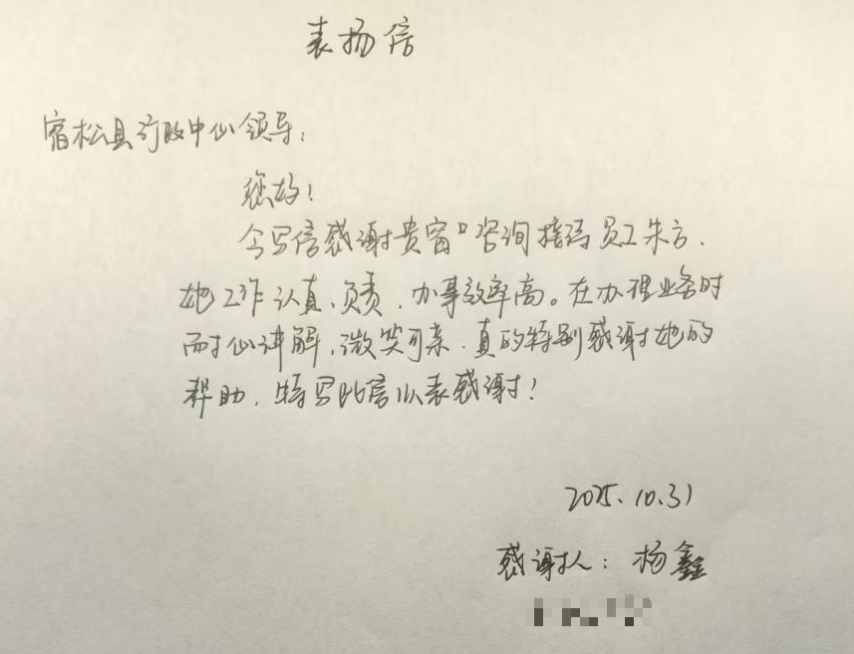 表扬信
宿松县行政中心领导：
您好！
今写信感谢贵窗口咨询指导员工朱方，
她工作认真、负责，办事效率高。在办理业务时
耐心讲解，微笑可亲，真的特别感谢她的
帮助，特写此信以表感谢！
2025.10.31
感谢人：杨鑫